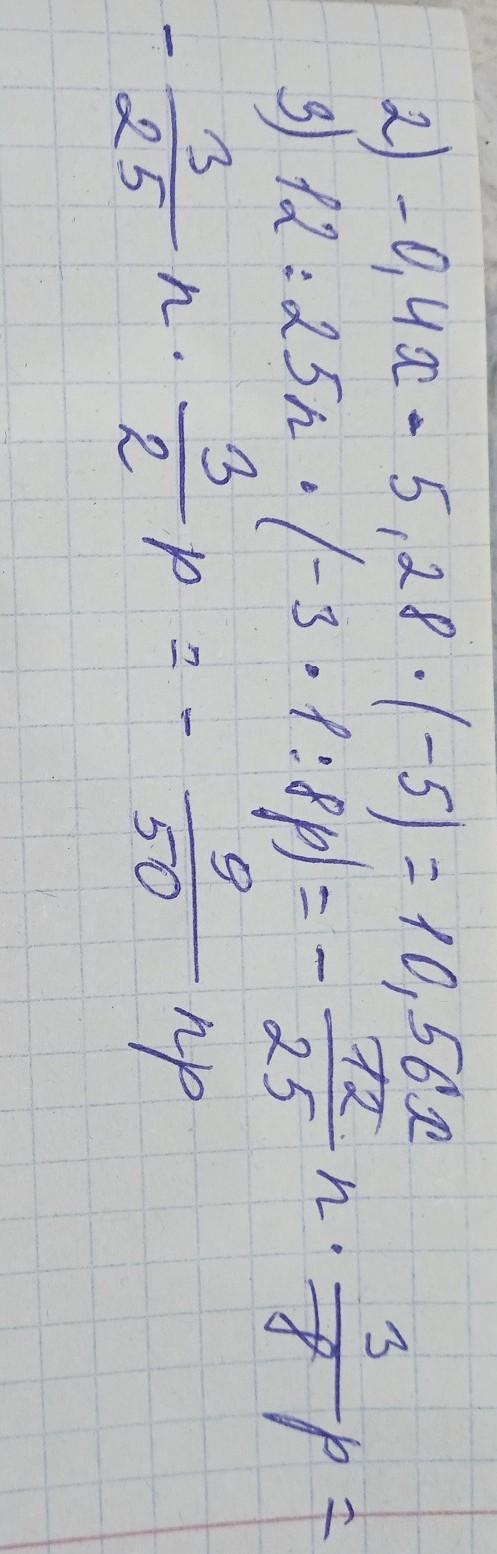 2) -0,4x · 5,28 · (-5) = 10,56x
3) 12 : 25n · (-3 · 1 : 8p) = - 12/25 n · 3/8 p =
- 3/25 n · 3/2 p = - 9/50 np